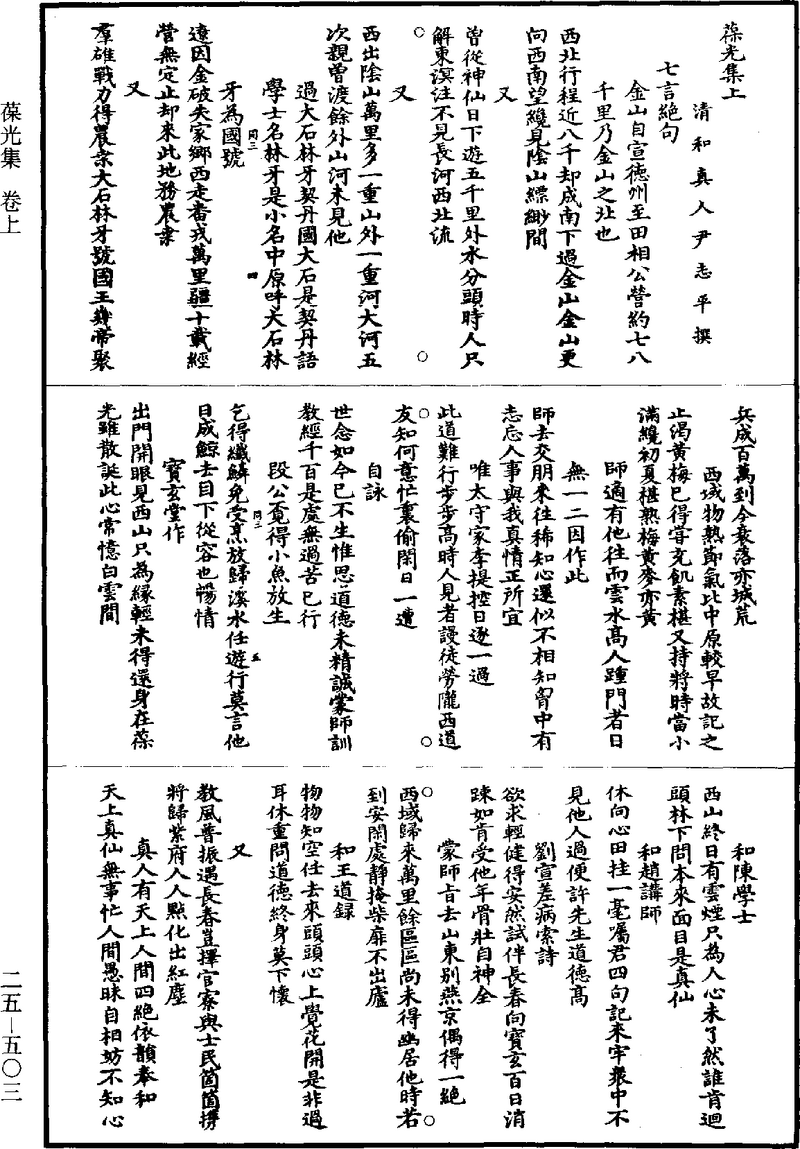 葆光集上
清和真人尹志平撰
七言絕句
金山自宣德州至田相公營約七八
千里乃金山之北也
西北行程近八千却成南下過金山金山更
向西南望纔見陰山縹緲間
又
曾從神仙日下遊五千里外水分頭時人只
解東溟注不見長河西北流
又
西出陰山萬里多一重山外一重河大河五
次親曾渡餘外山河未見他
過大石林牙契丹國大石是契丹語
學士名林牙是小名中原呼大石林
牙為國號
同三
四
遼因金破失家鄉西走番戎萬里疆十載經
營無定止却來此地務農桒
又
羣雄戰力得農桒大石林牙號國王幾帝聚
兵成百萬到今衰落亦城荒
西域物熱節氣比中原較早故記之
止渴黃梅已得甞充飢素椹又持將時當小
滿纔初夏椹熟梅黃麥亦黃
師適有他往而雲水高人踵門者日
無一二因作此
師去交朋來往稀知心還似不相知胷中有
志忘人事與我真情正所宜
唯太守家李提控日逐一過
此道難行步步高時人見者謾徒勞隴西道
友知何意忙裏偷閑日一遭
自詠
世念如今已不生惟思道德未精誠蒙師訓
教經千百是處無過苦己行
段公覓得小魚放生
同二
五
乞得纖鱗免受烹放歸溪水任遊行莫言他
日成鯨去目下從容也暢情
寶玄堂作
出門開眼見西山只為緣輕未得還身在葆
光雖散誕此心常憶白雲間
和陳學士
西山終日有雲煙只為人心未了然誰肯迴
頭林下問本來面目是真仙
和趙講師
休向心田挂一毫囑君四句記來牢衆中不
見他人過便許先生道德高
劉宣差病索詩
欲求輕健得安然試伴長春向寶玄百日消
踈如肯受他年骨壯自神全
蒙師旨去山東別燕京偶得一絕
西域歸來萬里餘區區尚未得幽居他時若
到安閑處靜掩柴扉不出廬
和王道録
物物知空任去來頭頭心上覺花開是非過
耳休重問道德終身莫下懷
又
教風普振遇長春豈擇官寮與士民箇箇撈
將歸紫府人人點化出紅塵
真人有天上人間四絕依韻奉和
天上真仙無事忙人間愚昧自相妨不知心
葆光集 卷上
二五—五〇三